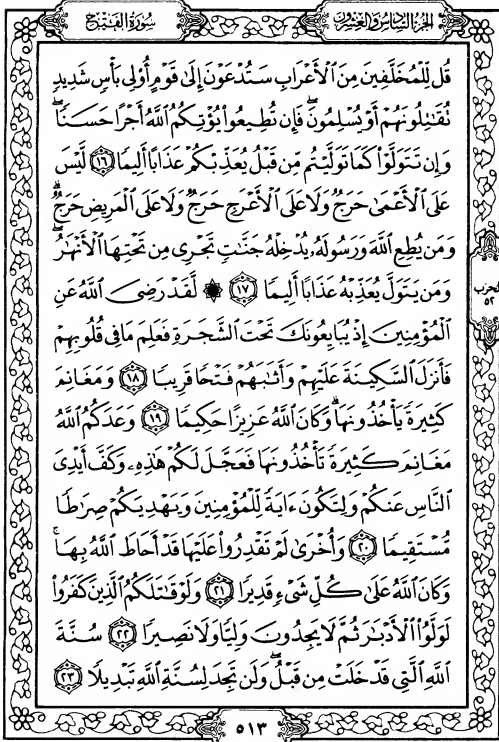 الجزء السادس والعشرون
سورة الفتح
قُل لِّلْمُخَلَّفِينَ مِنَ ٱلْأَعْرَابِ سَتُدْعَوْنَ إِلَىٰ قَوْمٍ أُو۟لِى بَأْسٍ شَدِيدٍ
تُقَـٰتِلُونَهُمْ أَوْ يُسْلِمُونَ ۖ فَإِن تُطِيعُوا۟ يُؤْتِكُمُ ٱللَّهُ أَجْرًا حَسَنًا ۖ
وَإِن تَتَوَلَّوْا۟ كَمَا تَوَلَّيْتُم مِّن قَبْلُ يُعَذِّبْكُمْ عَذَابًا أَلِيمًا ١٦ لَّيْسَ
عَلَى ٱلْأَعْمَىٰ حَرَجٌ وَلَا عَلَى ٱلْأَعْرَجِ حَرَجٌ وَلَا عَلَى ٱلْمَرِيضِ حَرَجٌ ۗ
وَمَن يُطِعِ ٱللَّهَ وَرَسُولَهُۥ يُدْخِلْهُ جَنَّـٰتٍ تَجْرِى مِن تَحْتِهَا ٱلْأَنْهَـٰرُ ۖ
وَمَن يَتَوَلَّ يُعَذِّبْهُ عَذَابًا أَلِيمًا ١٧ ۞ لَّقَدْ رَضِىَ ٱللَّهُ عَنِ
الحزب ٥٢
ٱلْمُؤْمِنِينَ إِذْ يُبَايِعُونَكَ تَحْتَ ٱلشَّجَرَةِ فَعَلِمَ مَا فِى قُلُوبِهِمْ
فَأَنزَلَ ٱلسَّكِينَةَ عَلَيْهِمْ وَأَثَـٰبَهُمْ فَتْحًا قَرِيبًا ١٨ وَمَغَانِمَ
كَثِيرَةً يَأْخُذُونَهَا ۗ وَكَانَ ٱللَّهُ عَزِيزًا حَكِيمًا ١٩ وَعَدَكُمُ ٱللَّهُ
مَغَانِمَ كَثِيرَةً تَأْخُذُونَهَا فَعَجَّلَ لَكُمْ هَـٰذِهِۦ وَكَفَّ أَيْدِىَ
ٱلنَّاسِ عَنكُمْ وَلِتَكُونَ ءَايَةً لِّلْمُؤْمِنِينَ وَيَهْدِيَكُمْ صِرَٰطًا
مُّسْتَقِيمًا ٢٠ وَأُخْرَىٰ لَمْ تَقْدِرُوا۟ عَلَيْهَا قَدْ أَحَاطَ ٱللَّهُ بِهَا ۚ
وَكَانَ ٱللَّهُ عَلَىٰ كُلِّ شَىْءٍ قَدِيرًا ٢١ وَلَوْ قَـٰتَلَكُمُ ٱلَّذِينَ كَفَرُوا۟
لَوَلَّوُا۟ ٱلْأَدْبَـٰرَ ثُمَّ لَا يَجِدُونَ وَلِيًّا وَلَا نَصِيرًا ٢٢ سُنَّةَ
ٱللَّهِ ٱلَّتِى قَدْ خَلَتْ مِن قَبْلُ ۖ وَلَن تَجِدَ لِسُنَّةِ ٱللَّهِ تَبْدِيلًا ٢٣
٥١٣